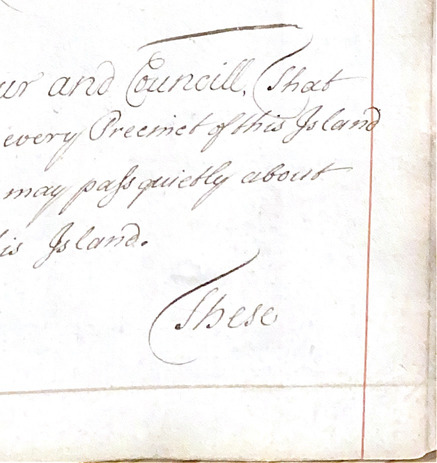 ur and Councill, That
every Precinct of this Island
may pass quietly about
is Island.
These